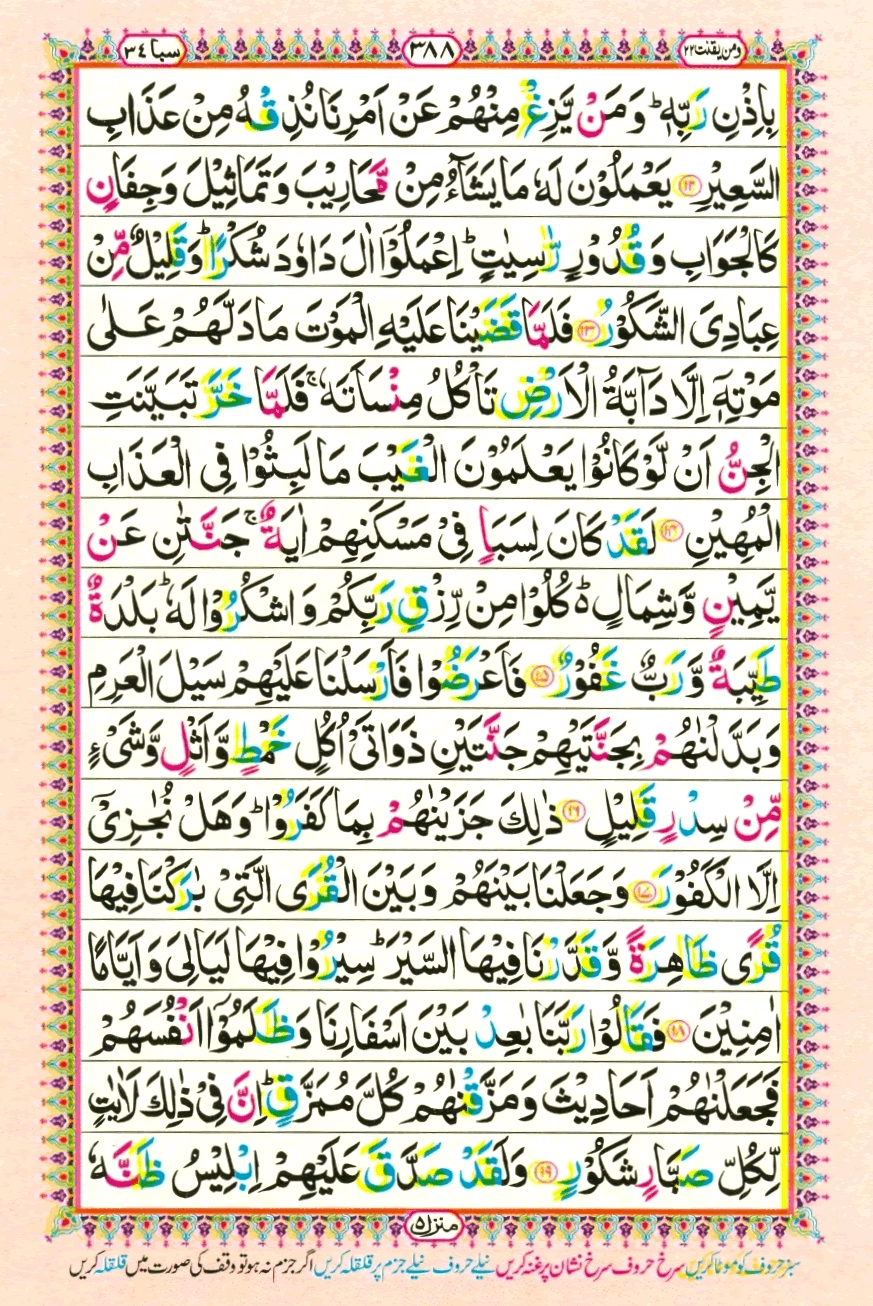 ومن یقنت ۲۲
۳۸۸
سبا ۳٤
بِاِذْنِ رَبِّهٖ ؕ وَ مَنْ يَّزِغْ مِنْهُمْ عَنْ اَمْرِنَا نُذِقْهُ مِنْ عَذَابِ
السَّعِيْرِ ﴿۱۲﴾ يَعْمَلُوْنَ لَهٗ مَا يَشَآءُ مِنْ مَّحَارِيْبَ وَ تَمَاثِيْلَ وَ جِفَانٍ
كَالْجَوَابِ وَ قُدُوْرٍ رّٰسِيٰتٍ ؕ اِعْمَلُوْۤا اٰلَ دَاوٗدَ شُكْرًا ؕ وَ قَلِيْلٌ مِّنْ
عِبَادِيَ الشَّكُوْرُ ﴿۱۳﴾ فَلَمَّا قَضَيْنَا عَلَيْهِ الْمَوْتَ مَا دَلَّهُمْ عَلٰى
مَوْتِهٖۤ اِلَّا دَآبَّةُ الْاَرْضِ تَاْكُلُ مِنْسَاَتَهٗ ۚ فَلَمَّا خَرَّ تَبَيَّنَتِ
الْجِنُّ اَنْ لَّوْ كَانُوْا يَعْلَمُوْنَ الْغَيْبَ مَا لَبِثُوْا فِي الْعَذَابِ
الْمُهِيْنِ ﴿۱۴﴾ لَقَدْ كَانَ لِسَبَاٍ فِيْ مَسْكَنِهِمْ اٰيَةٌ ۚ جَنَّتٰنِ عَنْ
يَّمِيْنٍ وَّ شِمَالٍ ؕ۬ كُلُوْا مِنْ رِّزْقِ رَبِّكُمْ وَ اشْكُرُوْا لَهٗ ؕ بَلْدَةٌ
طَيِّبَةٌ وَّ رَبٌّ غَفُوْرٌ ﴿۱۵﴾ فَاَعْرَضُوْا فَاَرْسَلْنَا عَلَيْهِمْ سَيْلَ الْعَرِمِ
وَ بَدَّلْنٰهُمْ بِجَنَّتَيْهِمْ جَنَّتَيْنِ ذَوَاتَيْ اُكُلٍ خَمْطٍ وَّ اَثْلٍ وَّ شَيْءٍ
مِّنْ سِدْرٍ قَلِيْلٍ ﴿۱۶﴾ ذٰلِكَ جَزَيْنٰهُمْ بِمَا كَفَرُوْا ؕ وَ هَلْ نُجٰزِيْۤ
اِلَّا الْكَفُوْرَ ﴿۱۷﴾ وَ جَعَلْنَا بَيْنَهُمْ وَ بَيْنَ الْقُرَى الَّتِيْ بٰرَكْنَا فِيْهَا
قُرًى ظَاهِرَةً وَّ قَدَّرْنَا فِيْهَا السَّيْرَ ؕ سِيْرُوْا فِيْهَا لَيَالِيَ وَ اَيَّامًا
اٰمِنِيْنَ ﴿۱۸﴾ فَقَالُوْا رَبَّنَا بٰعِدْ بَيْنَ اَسْفَارِنَا وَ ظَلَمُوْۤا اَنْفُسَهُمْ
فَجَعَلْنٰهُمْ اَحَادِيْثَ وَ مَزَّقْنٰهُمْ كُلَّ مُمَزَّقٍ ؕ اِنَّ فِيْ ذٰلِكَ لَاٰيٰتٍ
لِّكُلِّ صَبَّارٍ شَكُوْرٍ ﴿۱۹﴾ وَ لَقَدْ صَدَّقَ عَلَيْهِمْ اِبْلِيْسُ ظَنَّهٗ
منزل ۵
سبز حروف کو موٹا کریں سرخ حروف سرخ نشان پر غنہ کریں نیلے حروف نیلے جزم پر قلقلہ کریں اگر جزم نہ ہو تو وقف کی صورت میں قلقلہ کریں